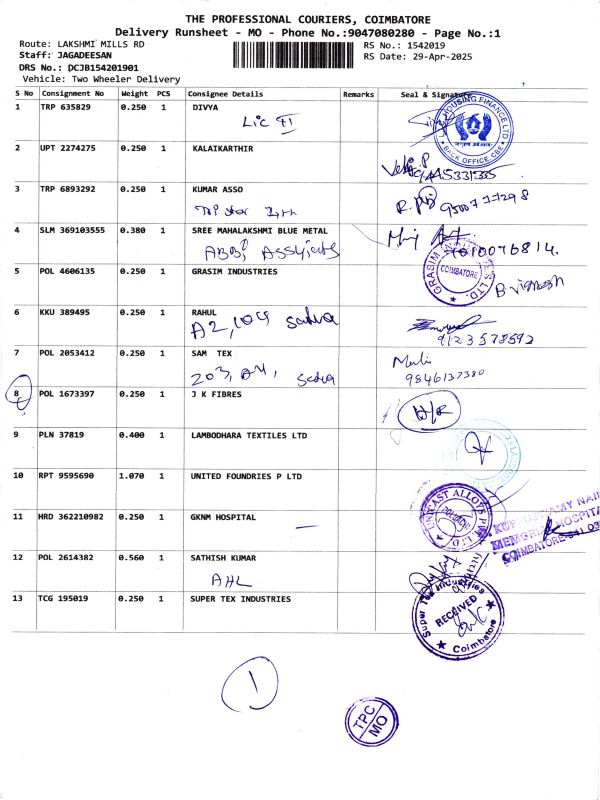 THE PROFESSIONAL COURIERS, COIMBATORE
Delivery Runsheet - MO - Phone No.:9047080280 - Page No.:1
Route: LAKSHMI MILLS RD
RS No.: 1542019
Staff: JAGADEESAN
RS Date: 29-Apr-2025
DRS No.: DCJB154201901
Vehicle: Two Wheeler Delivery
S No Consignment No Weight PCS Consignee Details Remarks Seal & Signature
1 TRP 635829 0.250 1 DIVYA
LIC
HOUSING FINANCE LTD
BACK OFFICE CBE
2 UPT 2274275 0.250 1 KALAIKARTHIR
3 TRP 6893292 0.250 1 KUMAR ASSO
4 SLM 369103555 0.380 1 SREE MAHALAKSHMI BLUE METAL
5 POL 4606135 0.250 1 GRASIM INDUSTRIES
GRASIM INDUSTRIES LTD.
COIMBATORE
6 KKU 389495 0.250 1 RAHUL
A2, 104
9123578592
7 POL 2053412 0.250 1 SAM TEX
203, A4,
9846137380
8 POL 1673397 0.250 1 J K FIBRES
9 PLN 37819 0.400 1 LAMBODHARA TEXTILES LTD
10 RPT 9595690 1.070 1 UNITED FOUNDRIES P LTD
UNICAST ALLOYS PVT LTD
11 HRD 362210982 0.250 1 GKNM HOSPITAL
KUPPUSWAMY NAI
MEMORIAL HOSPITA
COIMBATORE-641 03
12 POL 2614382 0.560 1 SATHISH KUMAR
AHL
13 TCG 195019 0.250 1 SUPER TEX INDUSTRIES
Super Tex Industries
RECEIVED
Coimbatore
1
TPC
MO